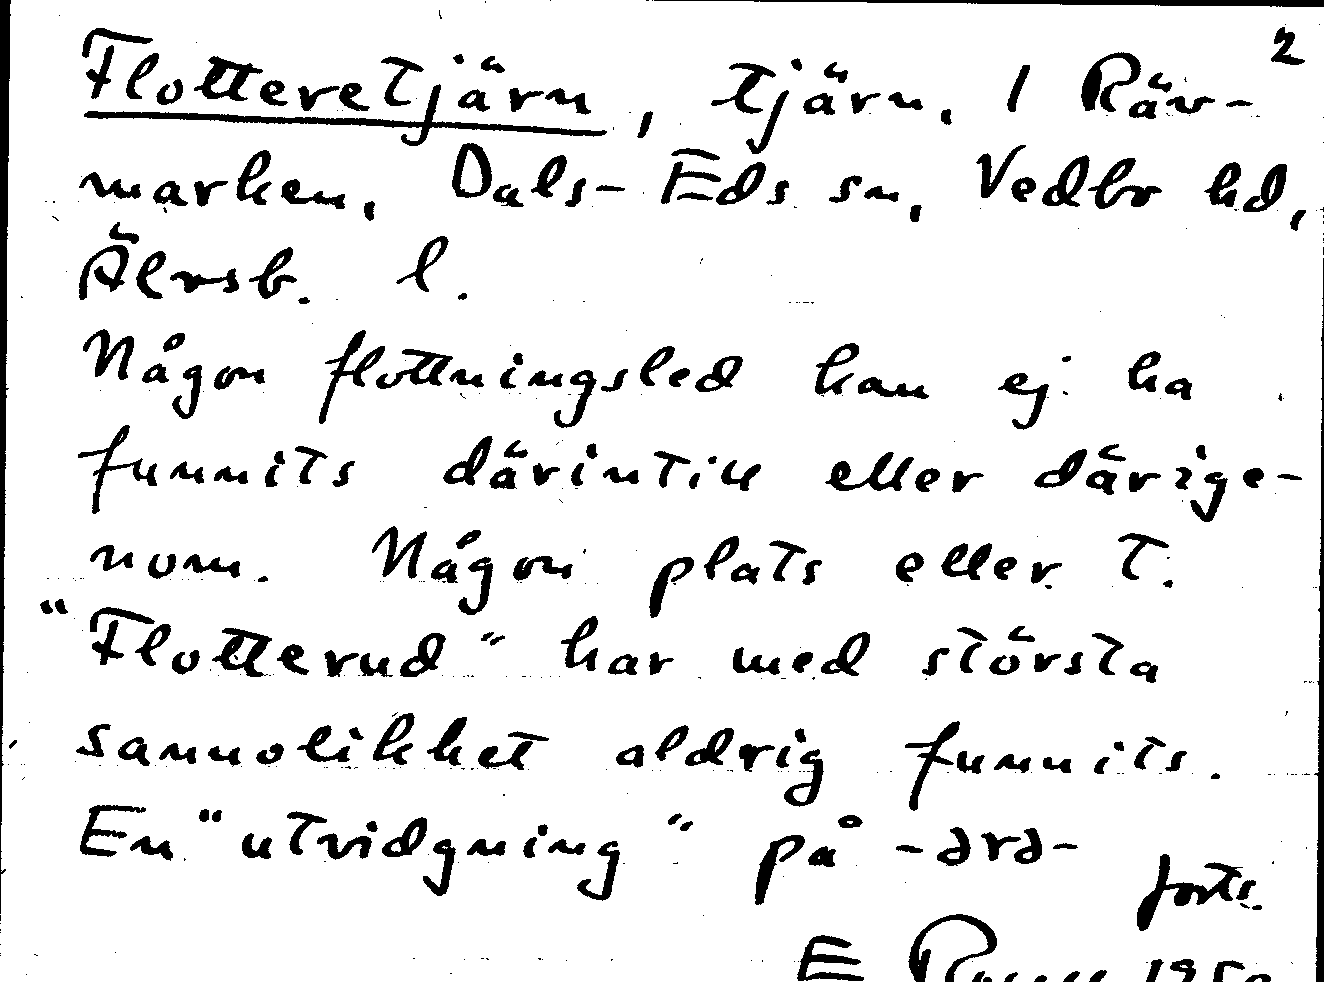 2
Flotteretjärn, tjärn, I Räv-
marken, Dals-Eds sn, Vedbo hd,
Älvsb. l.
Någon flottningsled kan ej ha
funnits därintill eller därige-
nom. Någon plats eller t.
"Flotterud" har med största
sannolikhet aldrig funnits.
En "utvidgning" på -ərə-
forts.
E